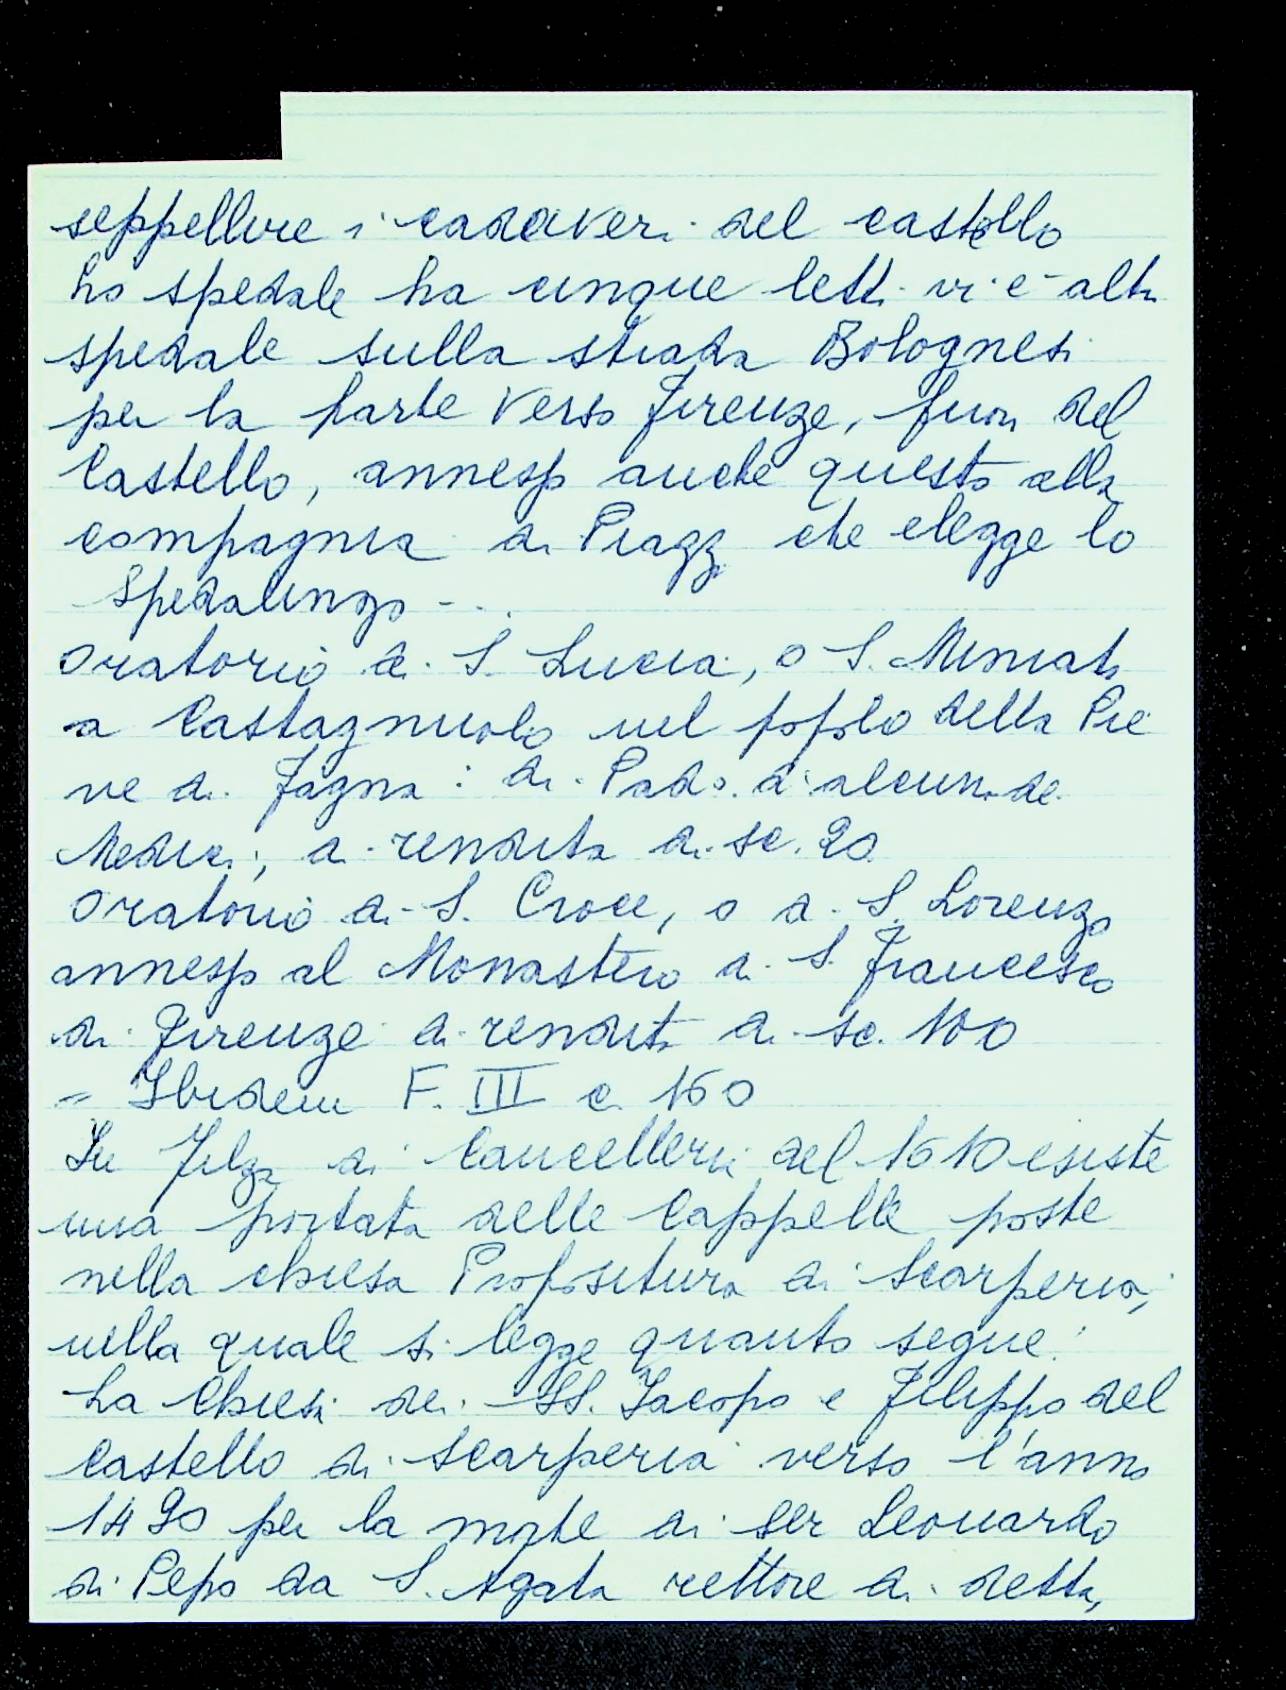 seppellire i cadaveri del castello
Lo spedale ha cinque letti vi è altro
spedale sulla strada Bolognese
per la parte verso Firenze, fuori del
Castello, annesso anche questo alla
compagnia di Piazza che elegge lo
Spedalingo - . .
Oratorio di S. Lucia, o S. Miniato
a Castagnuolo nel popolo della Pie
ve di Fagna : di Pado. di alcuni de
Medici; di rendita di sc. 20
Oratorio di S. Croce, o di S. Lorenzo
annesso al Monastero di S. Francesco
di Firenze di rendita di sc. 100
= Ibidem F. III c. 160
In Filza di Cancelleria del 1610 esiste
una portata delle Cappelle poste
nella chiesa Propositura di Scarperia,
nella quale si legge quanto segue:
La Chiesa dei SS. Jacopo e Filippo del
Castello di Scarperia verso l'anno
1420 per la morte di ser Leonardo
di Pepo da S. Agata rettore di detta,